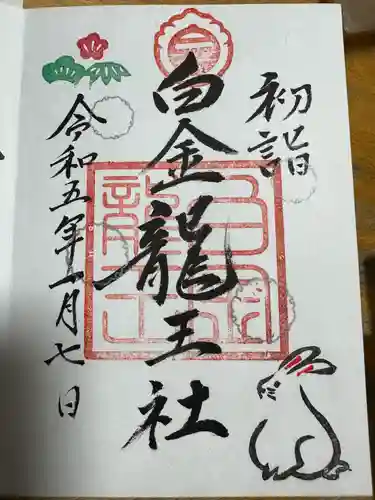 初詣
白金龍王社
令和五年一月七日